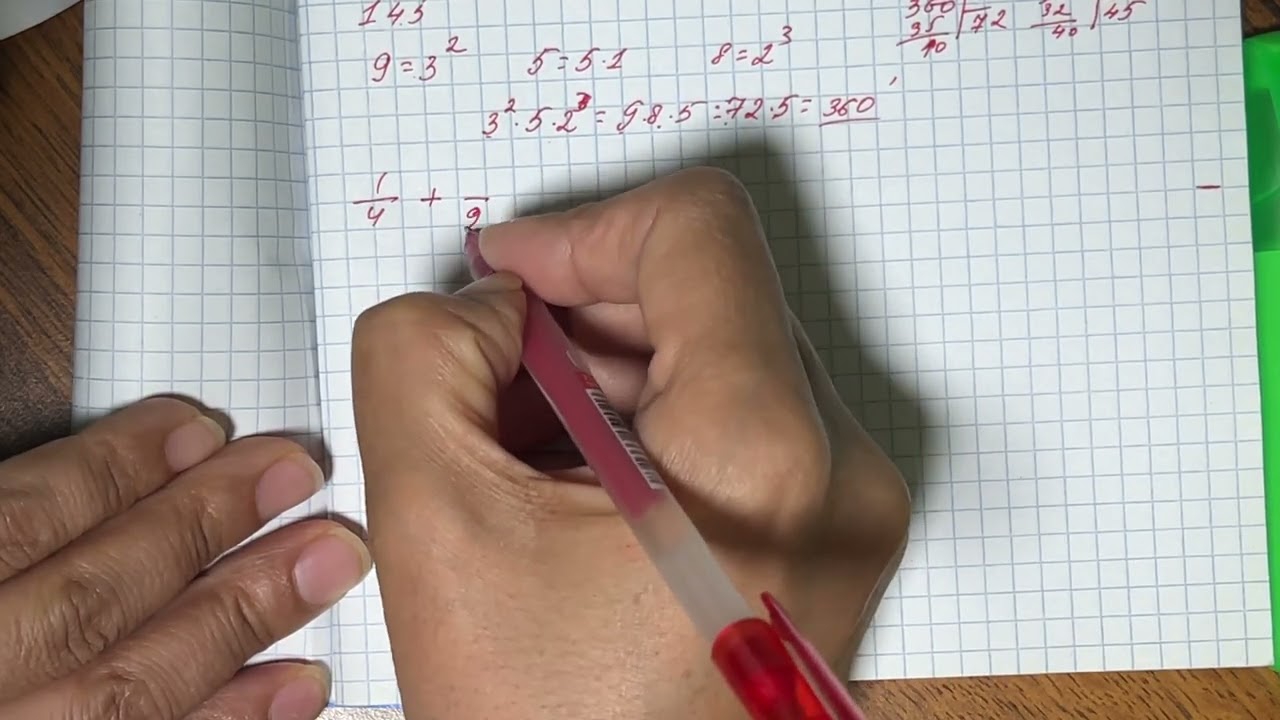 145
9 = 3² 5 = 5·1 8 = 2³
3²·5·2³ = 9·8·5 = 72·5 = 360
360 | 72
35
10
32 | 45
40
1/4 + /9